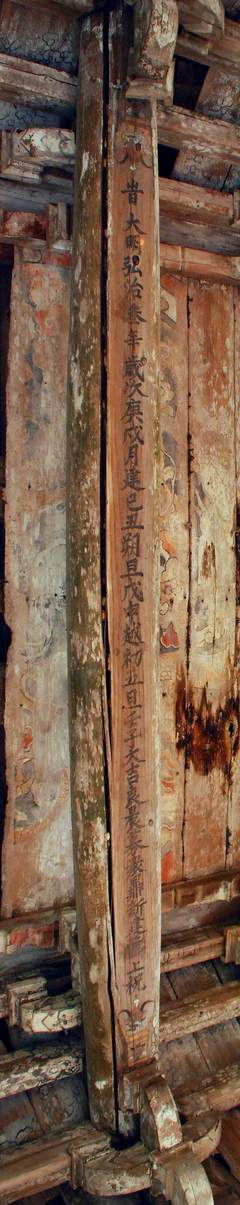 旹大明弘治叁年歲次庚戌月建己丑朔旦戊申越初五日壬子大吉良辰奉爲鼎新建 上祝